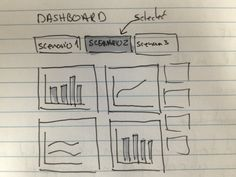 DASHBOARD
Selected
Scenario 1 SCENARIO 2 Scenario 3